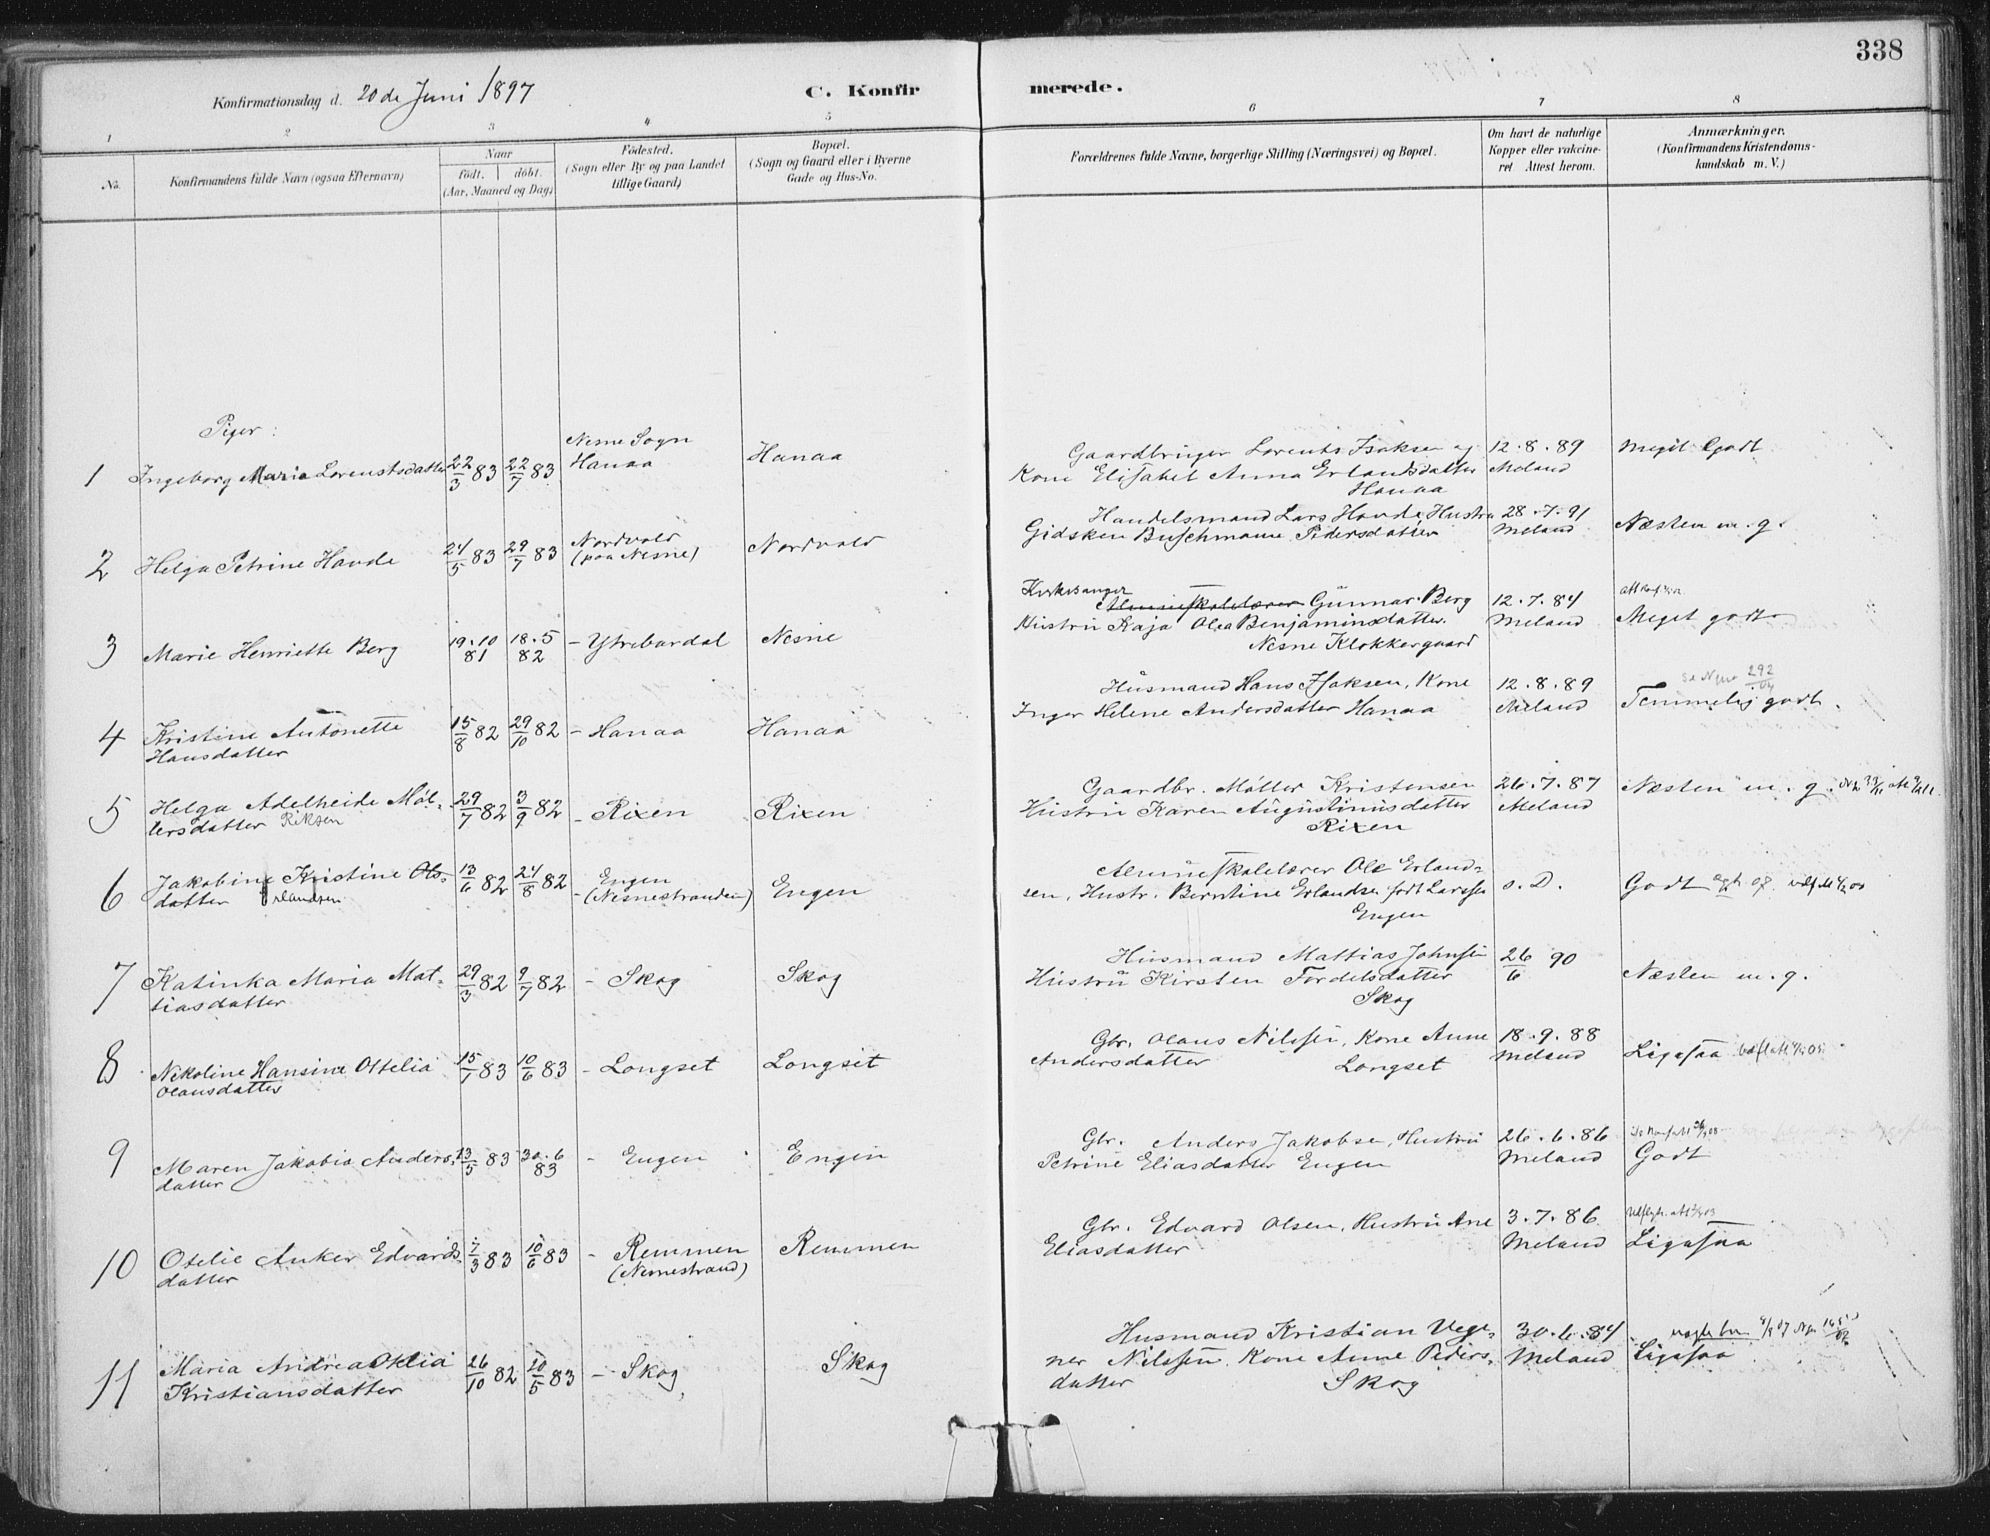 338
Konfirmationsdag d. 20de Juni 1897
C. Konfirmerede.
1 2 3 4 5 6 7 8
No.
Konfirmandens fulde Navn (ogsaa Efternavn)
Naar
födt. döbt.
(Aar, Maaned og Dag)
Födested.
(Sogn eller By og paa Landet
tillige Gaard)
Bopæl.
(Sogn og Gaard eller i Byerne
Gade og Hus-No.
Forældrenes fulde Navne, borgerlige Stilling (Næringsvei) og Bopæl.
Om havt de naturlige
Kopper eller vakcine-
ret Attest herom.
Anmærkninger.
(Konfirmandens Kristendoms-
kundskab m. V.)
Piger:
1 Ingeborg Maria Lorentsdatter 22/3 83 22/7 83 Nesne Sogn
Hanaa Hanaa
Gaardbruger Lorents Isaksen og
Kone Elisabet Anna Erlandsdatter
Hanaa
12.8.89
Meland
Meget Godt
2 Helga Petrine Havde 24/5 83 29/7 83 Nordvold
(paa Nesne) Nordvold
Handelsmand Lars Havde, Hustru
Gidsken Buschmann Pedersdatter
28.7.91
Meland
Næsten m. g.
3 Marie Henriette Berg 19.10 81 18.5 82 - Ytrebardal Nesne
Kirkesanger
Almueskolelærer Gunnar Berg
Hustru Kaja Olea Benjaminsdatter.
Nesne Klokkergaard
12.7.84
Meland
Meget godt
4 Kristine Antonette
Hansdatter 15/8 82 29/10 82 - Hanaa Hanaa
Husmand Hans Isaksen, Kone
Inger Helene Andersdatter Hanaa
12.8.89
Meland
292/04
Temmelig godt.
5 Helga Adelheide Möl-
lersdatter Riksen 29/7 82 3/9 82 - Rixen Rixen
Gaardbr. Möller Kristensen
Hustru Karen Augustinusdatter
Rixen
26.7.87
Meland
Næsten m. g.
6 Jakobine Kristine Ols-
datter Erlandsen 13/6 82 24/8 82 - Engen
(Nesnestranden) Engen
Almueskolelærer Ole Erland-
sen, Hustr. Berntine Erlandsen födt Larssen
Engen
s. D.
Godt
7 Katinka Maria Mat-
tiasdatter 29/3 82 9/7 82 - Skog Skog
Husmand Mattias Johnsen
Hustru Kirsten Tordelsdatter
Skog
26/6 90
Næsten m. g.
8 Nikoline Hansine Ottelia
Olausdatter 15/1 83 10/6 83 - Longset Longset
Gbr. Olaus Nilssen, Kone Anne
Andersdatter Longset
18.9.88
Meland
Ligesaa
9 Maren Jakobia Anders-
datter 13/5 83 30.6 83 - Engen Engen
Gbr. Anders Jakobsen, Hustru
Petrine Eliasdatter Engen
26.6.86
Meland
Godt
10 Otelie Anker Edvards-
datter 7/3 83 10/6 83 - Remmen
(Nesnestrand) Remmen
Gbr. Edvard Olsen, Hustru Ane
Eliasdatter
3.7.86
Meland
Ligesaa
11 Maria Andrea Otelia
Kristiansdatter 26/10 82 20/5 83 - Skog Skog
Husmand Kristian Vege-
ner Nilssen, Kone Anne Peders-
datter Skog
30.6.84
Meland
Ligesaa